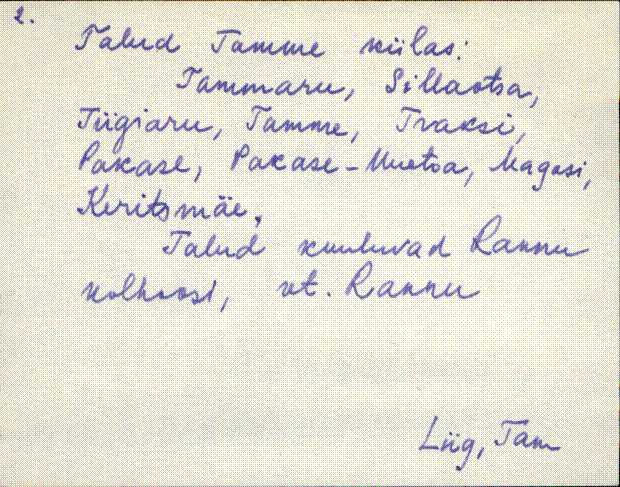 2.
Talud Tamme külas:
Tammaru, Sillaotsa,
Tiigiaru, Tamme, Traksi,
Pakase, Pakase-Uuetoa, Magasi,
Keritsmäe.
Talud kuuluvad Rannu
kolhoosi, vt. Rannu
Liig, Tam